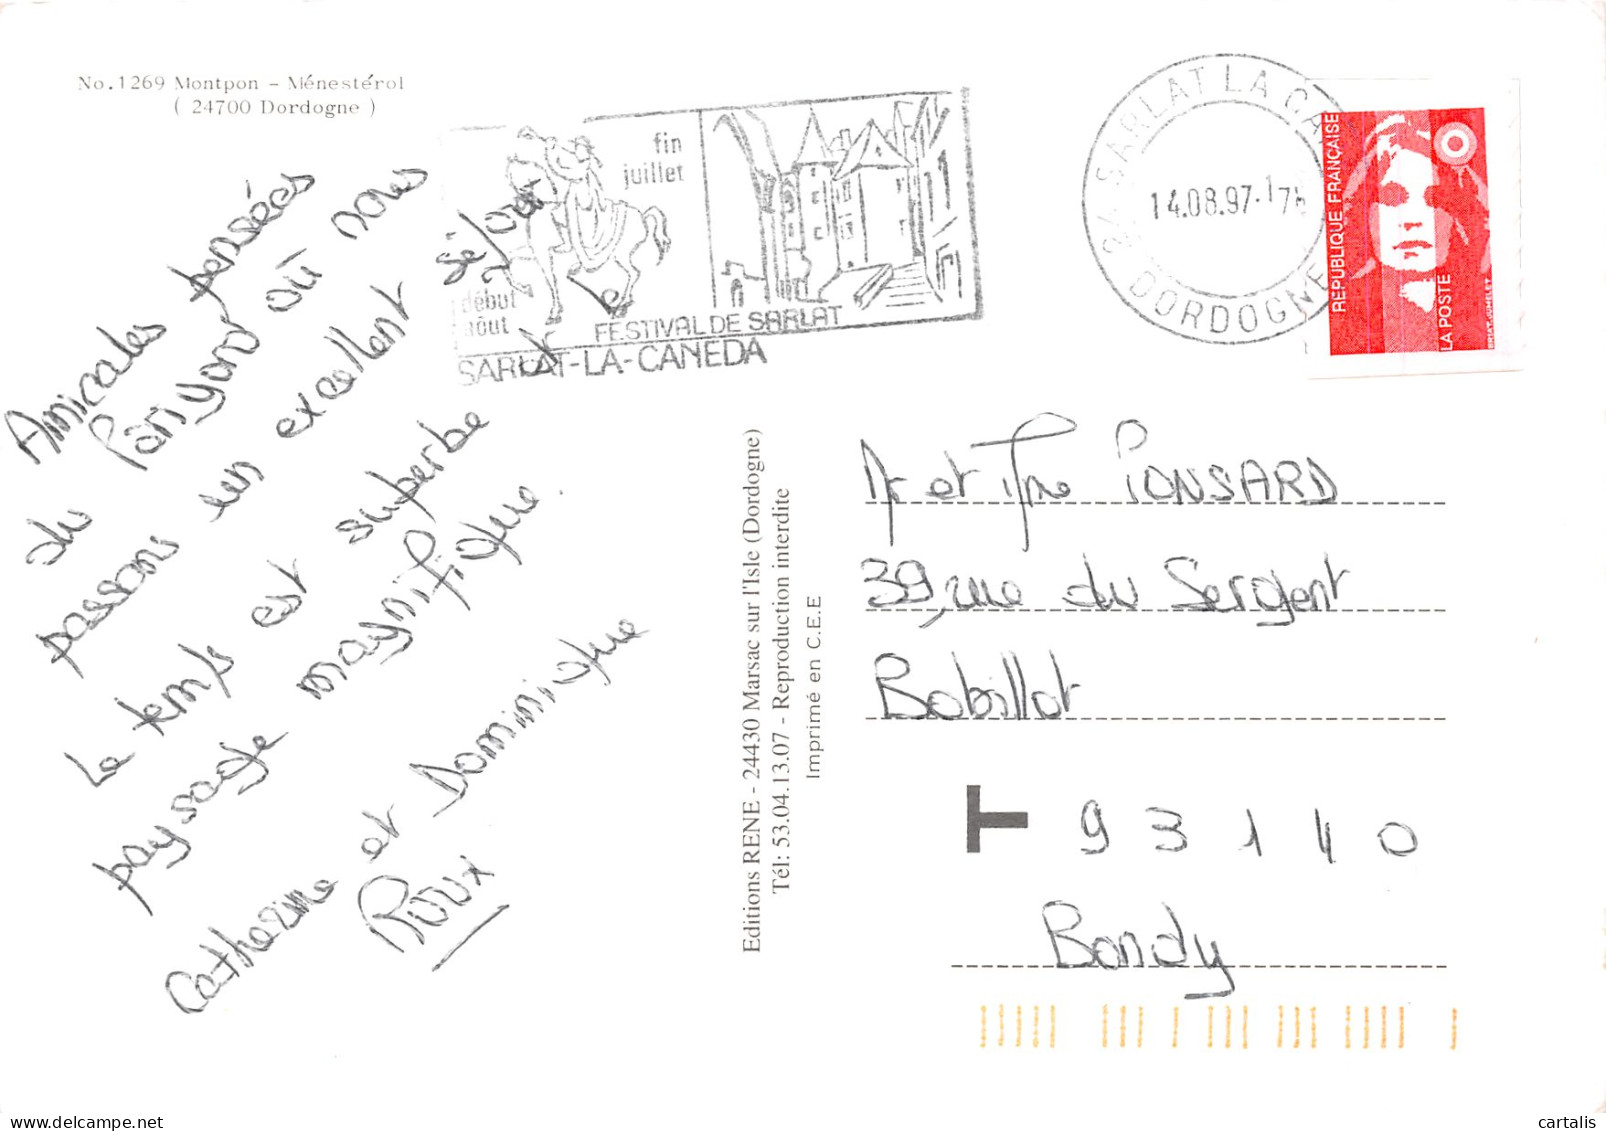 No.1269 Montpon - Ménestérol
( 24700 Dordogne )
Amicales pensées
du Périgord où nous
passons un excellent séjour
Le temps est superbe et le
paysage magnifique.
Catherine et Dominique
Roux
fin
juillet
début
aout
FESTIVAL DE SARLAT
SARLAT-LA-CANEDA
24 SARLAT LA CA
14.08.97-17H
DORDOGNE
REPUBLIQUE FRANÇAISE
LA POSTE
Editions RENE - 24430 Marsac sur l'Isle (Dordogne)
Tél: 53.04.13.07 - Reproduction interdite
Imprimé en C.E.E
Mr et Mme PONSARD
39, rue du Sergent
Bobillot
T 93140
Bondy
cartalis